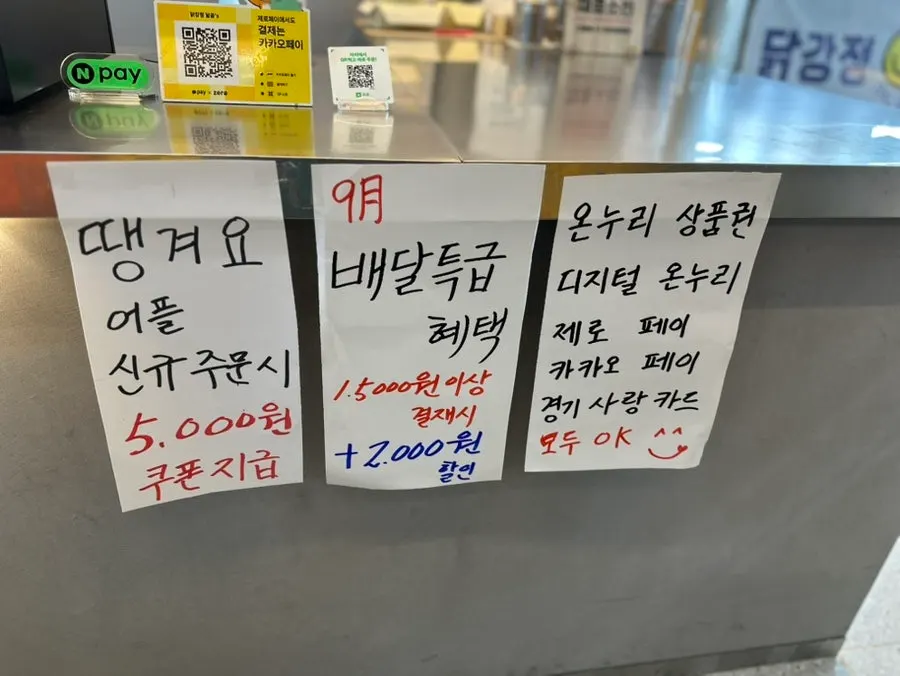 N pay
제로페이에서도
결제는
카카오페이
닭강정
땡겨요
어플
신규 주문시
5.000원
쿠폰 지급
9月
배달특급
혜택
1.5000원 이상
결재시
+2.000원
할인
온누리 상품권
디지털 온누리
제로 페이
카카오 페이
경기 사랑 카드
모두 OK